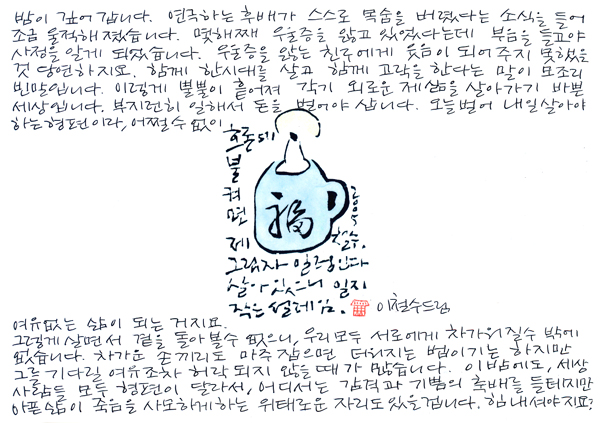 밤이 깊어 갑니다. 연극하는 후배가 스스로 목숨을 버렸다는 소식을 들어
조금 울적해졌습니다. 몇해째 우울증을 앓고 있었다는데 부음을 듣고야
사정을 알게 되었습니다. 우울증을 앓는 친구에게 웃음이 되어주지 못했을
것 당연하지요. 함께 한시대를 살고 함께 고락을 한다는 말이 모조리
빈말입니다. 이렇게 뿔뿔이 흩어져 각기 외로운 제 삶을 살아가기 바쁜
세상입니다. 부지런히 일해서 돈을 벌어야 삽니다. 오늘벌어 내일살아야
하는형편이라, 어쩔수 없이
불
켜
면
제
福
2005
철수.
그림자 일렁인다
살아있으니 일지
작은 설레임.
이철수드림
여유없는 삶이 되는 거지요.
그렇게 살면서 곁을 돌아볼수 없으니, 우리모두 서로에게 차가워질수 밖에
없습니다. 차가운 손끼리도 마주잡으면 더워지는 법이기는 하지만
그를 기다릴 여유조차 허락되지 않을때가 많습니다. 이밤에도, 세상
사람들 모두 형편이 달라서, 어디서는 감격과 기쁨의 축배를 들테지만
아픈삶이 죽음을 사모하게하는 위태로운 자리도있을겁니다. 힘내셔야지요?